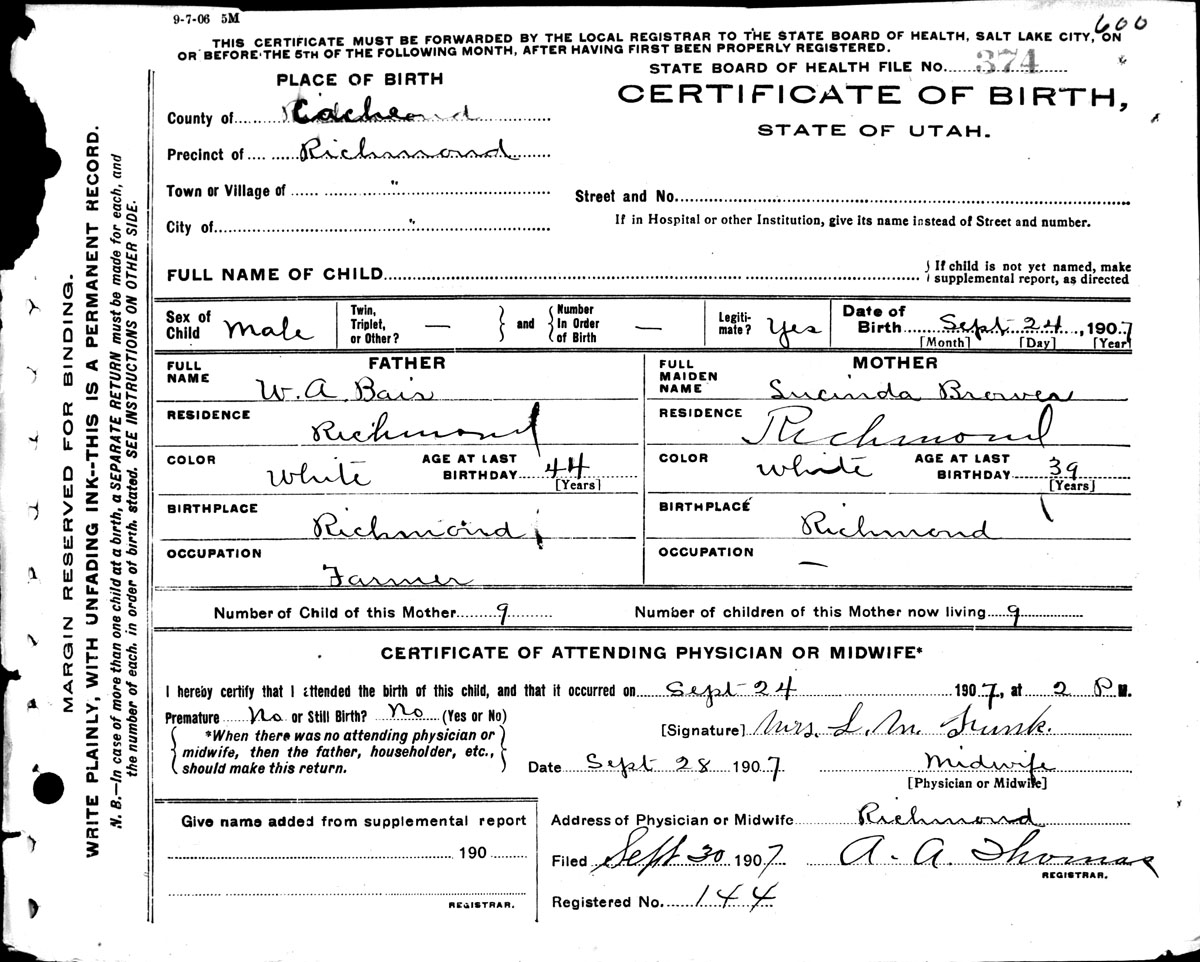 9-7-06 5M
600
THIS CERTIFICATE MUST BE FORWARDED BY THE LOCAL REGISTRAR TO THE STATE BOARD OF HEALTH, SALT LAKE CITY, ON
OR BEFORE THE 5TH OF THE FOLLOWING MONTH, AFTER HAVING FIRST BEEN PROPERLY REGISTERED.
STATE BOARD OF HEALTH FILE No. 374
PLACE OF BIRTH
CERTIFICATE OF BIRTH,
STATE OF UTAH.
County of
Precinct of Richmond
Town or Village of "
Street and No.
City of "
If in Hospital or other Institution, give its name instead of Street and number.
FULL NAME OF CHILD
{ If child is not yet named, make
supplemental report, as directed
Sex of Child Male
Twin, Triplet, or Other? —
and
Number in Order of Birth —
Legiti-mate? Yes
Date of Birth Sept 24, 1907
[Month] [Day] [Year]
FATHER
FULL NAME W. A. Bair
RESIDENCE Richmond
COLOR White
AGE AT LAST BIRTHDAY 44
[Years]
BIRTHPLACE Richmond
OCCUPATION Farmer
MOTHER
FULL MAIDEN NAME Lucinda
RESIDENCE Richmond
COLOR White
AGE AT LAST BIRTHDAY 39
[Years]
BIRTHPLACE Richmond
OCCUPATION —
Number of Child of this Mother 9
Number of children of this Mother now living 9
CERTIFICATE OF ATTENDING PHYSICIAN OR MIDWIFE*
I hereby certify that I attended the birth of this child, and that it occurred on Sept 24 1907, at 2 P.M.
Premature No or Still Birth? No (Yes or No)
*When there was no attending physician or
midwife, then the father, householder, etc.,
should make this return.
[Signature] Mrs. L. M. Funk.
Date Sept 28 1907
Midwife
[Physician or Midwife]
Give name added from supplemental report
190
REGISTRAR.
Address of Physician or Midwife Richmond
Filed Sept 30 1907
A. A. Thomas
REGISTRAR.
Registered No. 144
MARGIN RESERVED FOR BINDING.
WRITE PLAINLY, WITH UNFADING INK--THIS IS A PERMANENT RECORD.
N. B.—In case of more than one child at a birth, a SEPARATE RETURN must be made for each, and
the number of each, in order of birth, stated. SEE INSTRUCTIONS ON OTHER SIDE.